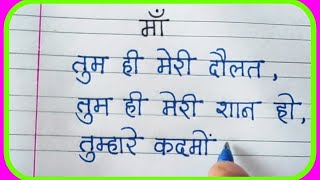 माँ
तुम ही मेरी दौलत,
तुम ही मेरी शान हो,
तुम्हारे कदमों